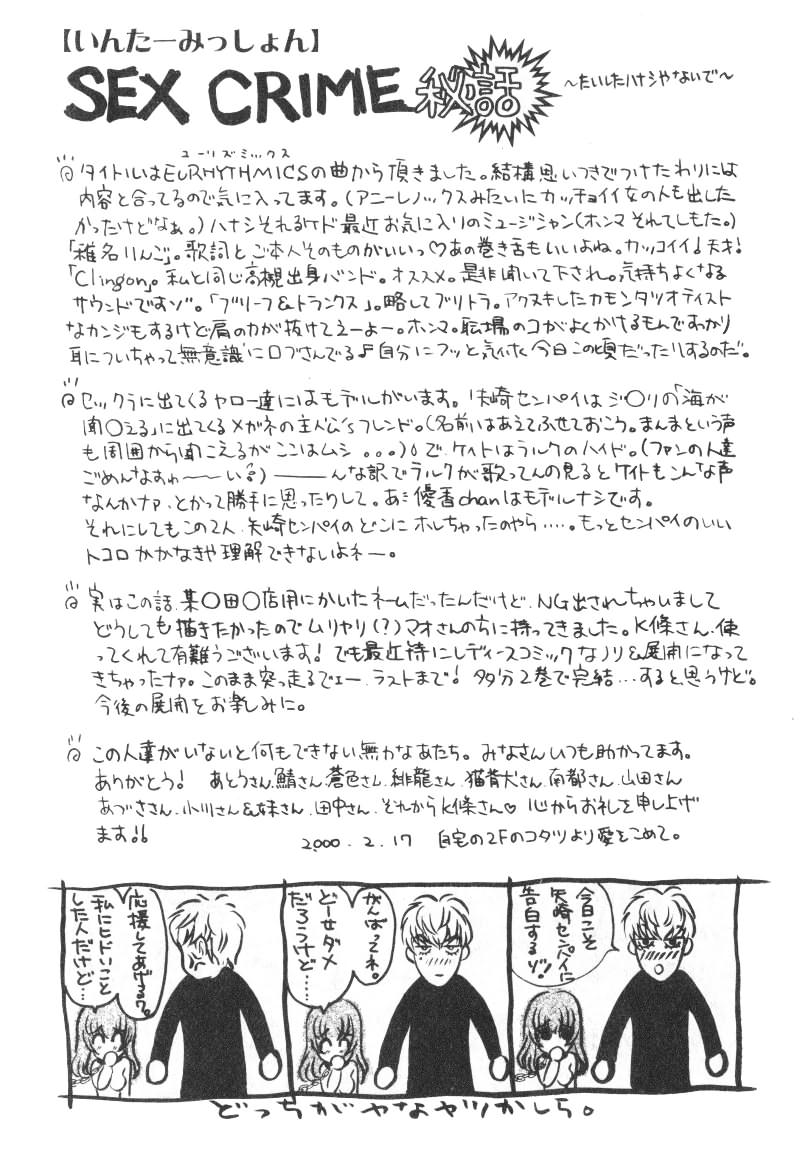 【いんたーみっしょん】
SEX CRIME 秘話 〜たいしたハナシやないで〜
ユーリズミックス
タイトルはEURHYTHMICSの曲から頂きました。結構思いつきでつけたわりには
内容と合ってるので気に入ってます。(アニーレノックスみたいにカッチョイイ女の人も出した
かったけどなぁ。)ハナシそれるケド最近お気に入りのミュージシャン(ホンマそれてしもた。)
「椎名りんご」。歌詞とご本人そのものがいいっ♡あの巻き舌もいいよね。カッコイイ!天才!
「Clingon」。私と同じ高槻出身バンド。オススメ。是非聞いて下され。気持ちよくなる
サウンドですゾ。「ブリーフ&トランクス」。略してブリトラ。アクヌキしたカモンタツオテイスト
なカンジもするけど肩の力が抜けてえーよー。ホンマ。職場のコがよくかけるもんでわかり
耳についちゃって無意識に口ずさんでる♪自分にフッと気付く今日この頃だったりするのだ。
セックラに出てくるヤロー達にはモデルがいます。矢崎センパイはジ○リの「海が
聞○える」に出てくるメガネの主人公'sフレンド。(名前はあえてふせておこう。まんまという声
も周囲から聞こえるがここはムシ。。。)で、ケイトはラルクのハイド。(ファンの人達
ごめんなさい)んな訳でラルクが歌ってんの見るとケイトもこんな声
なんかナァ、とかって勝手に思ったりして。あ、優香chanはモデルナシです。
それにしてもこの2人、矢崎センパイのどこにホレちゃったのやら・・・・。もっとセンパイのいい
トコロかかなきゃ理解できないよネー。
実はこの話、某○田○店用にかいたネームだったんだけど、NG出されちゃいまして
どうしても描きたかったのでムリヤリ(?)マオさんのちに持ってきました。K條さん、使
ってくれて有難うございます!でも最近特にレディースコミックなノリ&展開になって
きちゃったナァ。このまま突っ走るでェー、ラストまで!多分2巻で完結…すると思うけど。
今後の展開をお楽しみに。
この人達がいないと何もできない無力なあたち。みなさんいつも助かってます。
ありがとう! あとうさん、鯖さん、蒼色さん、緋龍さん、猫背犬さん、南都さん、山田さん
あづささん、小川さん&妹さん、田中さん、それからK條さん♡ 心からお礼を申し上げ
ます!!
2000.2.17 自宅の2Fのコタツより愛をこめて。
今日こそ
矢崎センパイに
告白するゾ!
がんばってネ。
どーせダメ
だろうけど…
応援してあげるワ。
私にヒドいこと
した人だけど…
どっちがヤなヤツかしら。